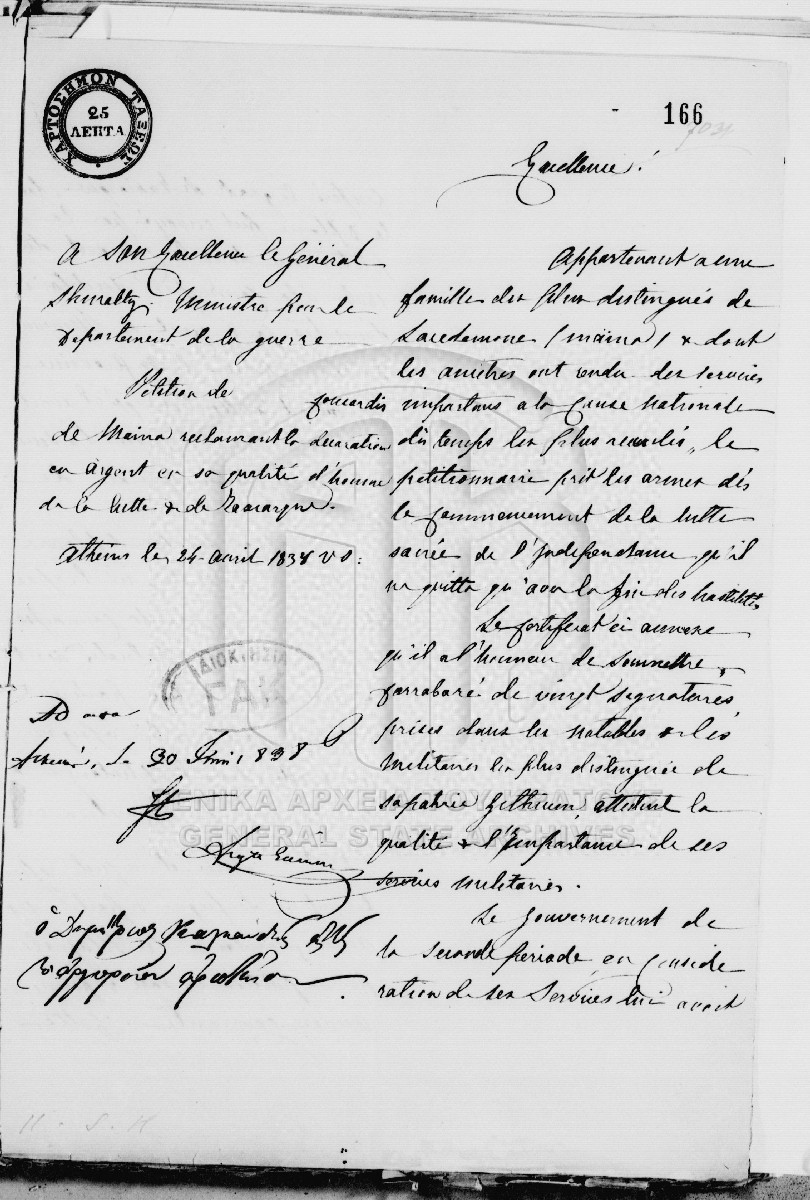 ΧΑΡΤΟΣΗΜΟΝ ΤΑΞΕΩΣ
25
ΛΕΠΤΑ
166
Excellence!
A Son Excellence le Général
Ministre pour le
Departement de la guerre
Petition de
de Maina reclamant la decoration
en argent en sa qualité d'homme
de la lutte & de
Athènes le 24 avril 1838 V S:
Appartenant a une
famille des plus distingués de
Lacedemone (maina) & dont
les ancêtres ont rendu des services
importans a la Cause Nationale
dès temps les plus reculés, le
petitionnaire prit les armes dés
le Commencement de la lutte
sacrée de l'Independance qu'il
ne quitta qu'avec la fin des hostilités
Le Certificat ci annexe
qu'il a l'honneur de Soumettre,
de vingt signatures,
prises dans les notables & les
Militaires les plus distingués de
sa patrie, attestent la
qualité & l'Importance de ses
services militaires.
Le Gouvernement de
la seconde periode, en Conside
ration de ses Services lui avait
30 1838
ΙΔΙΟΚΤΗΣΙΑ
ΓΑΚ
ΓΕΝΙΚΑ ΑΡΧΕΙΑ ΤΟΥ ΚΡΑΤΟΥΣ
GENERAL STATE ARCHIVES